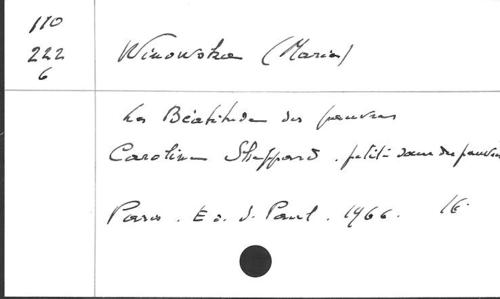 110
222
6
Winowska (Maria)
La Béatitude des pauvres
Caroline Sheppard. petite sœur des pauvres
Paris. Ed. S. Paul. 1966. 16.